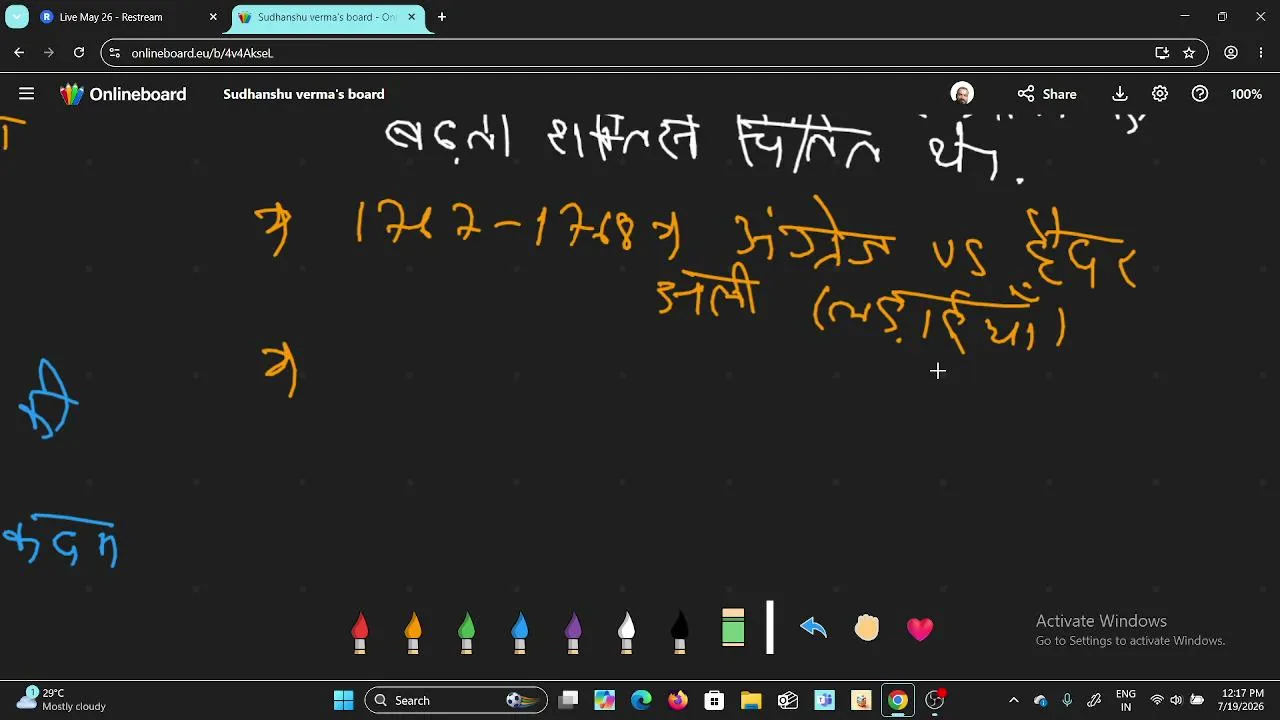 Live May 26 - Restream
Sudhanshu verma's board - Onl
onlineboard.eu/b/4v4AkseL
Onlineboard
Sudhanshu verma's board
Share
100%
बढ़ती शक्ति से चिंतित थे.
→ 1767-1768 → अंग्रेज vs हैदर
अली (लड़ाईयाँ)
→
कदम
Activate Windows
Go to Settings to activate Windows.
1
29°C
Mostly cloudy
Search
ENG
IN
12:17 PM
7/19/2026